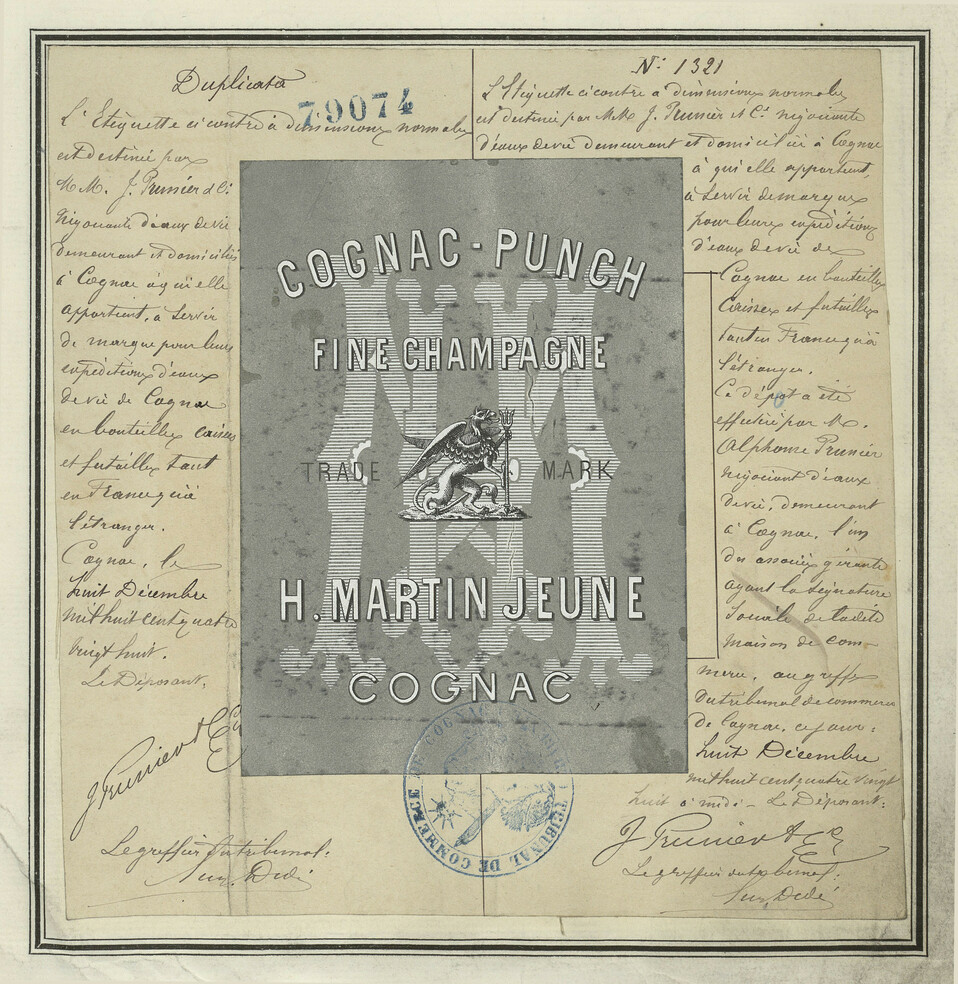 Duplicata
79074
L'Etiquette ci contre à dimensions normales
est destinée par
M M. J. Prunier & Cie
négociants d'eaux de vie
demeurant et domiciliés
à Cognac à qui elle
appartient, à servir
de marque pour leurs
expéditions d'eaux
de vie de Cognac
en bouteilles caisses
et futailles tant
en France qu'à
l'étranger.
Cognac, le
huit Décembre
mil huit cent quatre
vingt huit.
Le Déposant,
J Prunier & Cie
Le greffier du tribunal:
COGNAC-PUNCH
FINE CHAMPAGNE
TRADE MARK
H. MARTIN JEUNE
COGNAC
TRIBUNAL DE COMMERCE DE COGNAC
N: 1321
L'Etiquette ci contre à dimensions normales
est destinée par M.M. J. Prunier et Cie négociants
d'eaux de vie demeurant et domiciliés à Cognac
à qui elle appartient,
à servir de marque
pour leurs expéditions
d'eaux de vie de
Cognac en bouteilles
Caisses et futailles
tant en France qu'à
l'étranger.
Ce dépot a été
effectué par M.
Alphonse Prunier
négociant d'eaux
de vie, demeurant
à Cognac, l'un
des associés gérants
ayant la signature
sociale de ladite
maison de com-
merce, au greffe
du tribunal de commerce
de Cognac, ce jour:
huit Décembre
mil huit cent quatre vingt
huit à midi - Le Déposant:
J Prunier & Cie
Le greffier du tribunal: